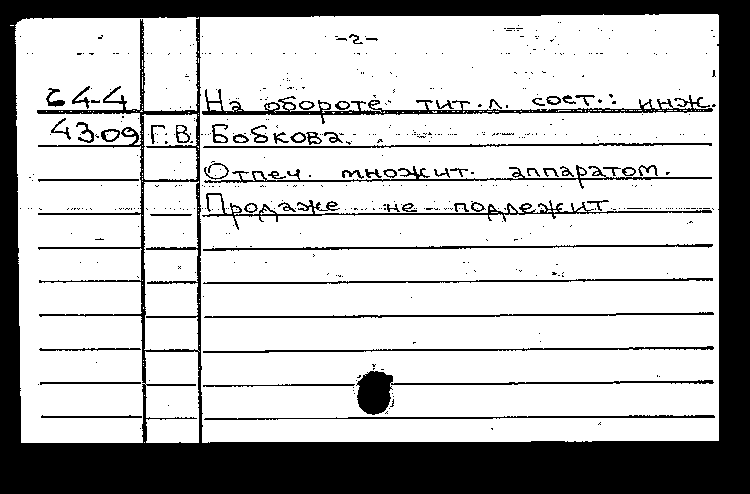 -2-
64-4 На обороте тит.л. сост.: инж.
43.09 Г.В. Бобкова.
Отпеч. множит. аппаратом.
Продаже не подлежит